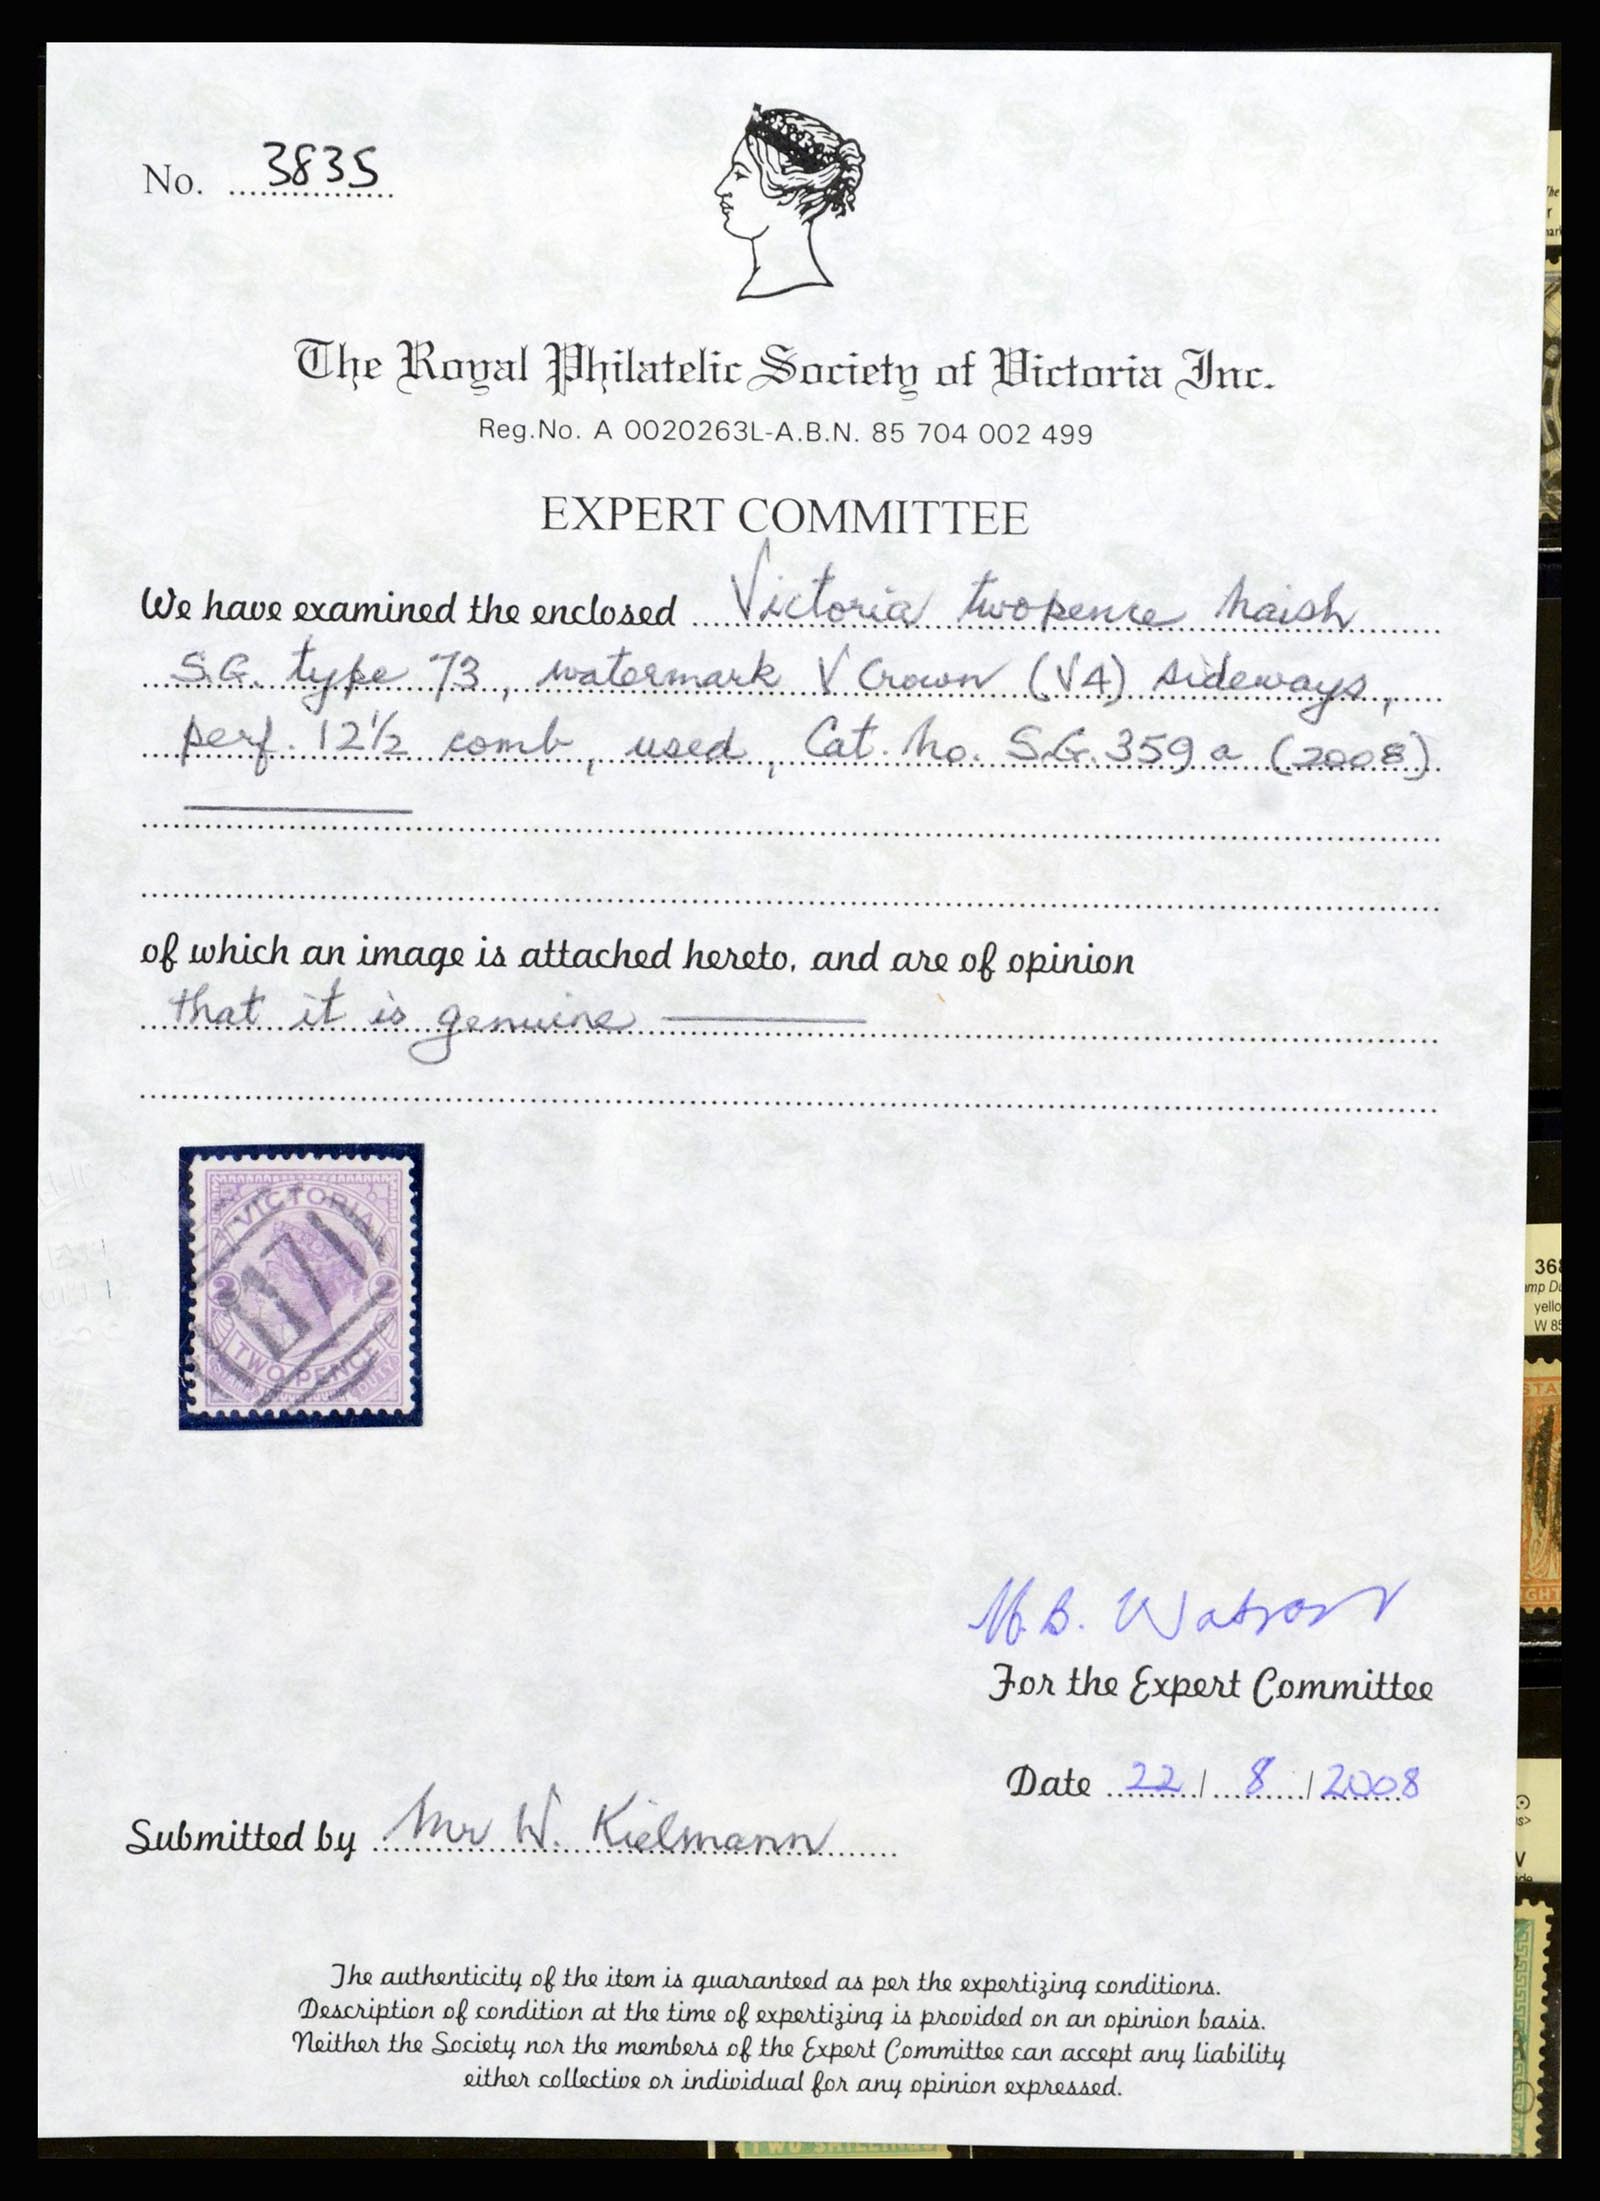 No. 3835
The Royal Philatelic Society of Victoria Inc.
Reg.No. A 0020263L-A.B.N. 85 704 002 499
EXPERT COMMITTEE
We have examined the enclosed Victoria twopence Naish
S.G. type 73, watermark V Crown (V4) sideways,
perf. 12½ comb, used, Cat. No. S.G. 359a (2008)
of which an image is attached hereto, and are of opinion
that it is genuine
VICTORIA
2 2
TWO PENCE
M.B. Watson
For the Expert Committee
Date 22/8/2008
Submitted by Mr W. Kielmann
The authenticity of the item is guaranteed as per the expertizing conditions.
Description of condition at the time of expertizing is provided on an opinion basis.
Neither the Society nor the members of the Expert Committee can accept any liability
either collective or individual for any opinion expressed.
368
yello
W 85
TWO SHILLINGS